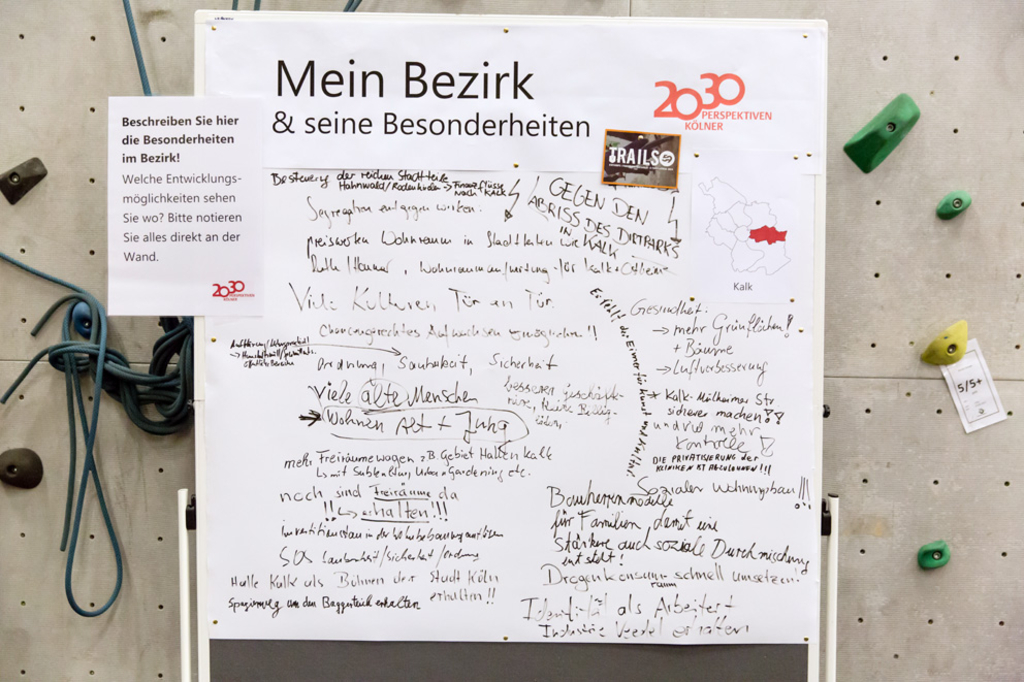 Mein Bezirk
& seine Besonderheiten
2030
PERSPEKTIVEN
KÖLNER
Beschreiben Sie hier
die Besonderheiten
im Bezirk!
Welche Entwicklungs-
möglichkeiten sehen
Sie wo? Bitte notieren
Sie alles direkt an der
Wand.
2030
PERSPEKTIVEN
KÖLNER
TRAILS
Kalk
5/5+
Besteuerung der reichen Stadtteile
Hahnwald/Rodenkirchen → Finanzflüsse
nach Kalk
GEGEN DEN
ABRISS DES DIRTPARKS
IN
KALK
Segregation entgegen wirken:
preiswerten Wohnraum in Stadtteilen wie
Viele Kulturen Tür an Tür.
Chancengerechtes Aufwachsen ermöglichen!!
Ordnung, Sauberkeit, Sicherheit
Viele alte Menschen
→ Wohnen Alt + Jung
bessere Geschäfte
mehr Freiräume wagen z.B. Gebiet Hallen Kalk
mit Subkultur, Urban Gardening etc.
noch sind Freiräume da
!! → erhalten!!!
Sauberkeit/Sicherheit/Ordnung
Halle Kalk als Bühnen der Stadt Köln
erhalten!!
Spazierweg um den Baggerteich erhalten
Erhöht die Eimer für Kunst und Kultur!
Gesundheit:
→ mehr Grünflächen!
+ Bäume
→ Luftverbesserung
* Kalk-Mülheimer Str
sicherer machen!!
und viel mehr
Kontrolle!
DIE PRIVATISIERUNG der
KLINIKEN IST ABZULEHNEN!!!
Sozialer Wohnungsbau!!!
Bauherrenmodelle
für Familien, damit eine
stärkere auch soziale Durchmischung
entsteht!
Drogenkonsumraum schnell umsetzen!
Identität als Arbeiter +
Industrie Veedel erhalten